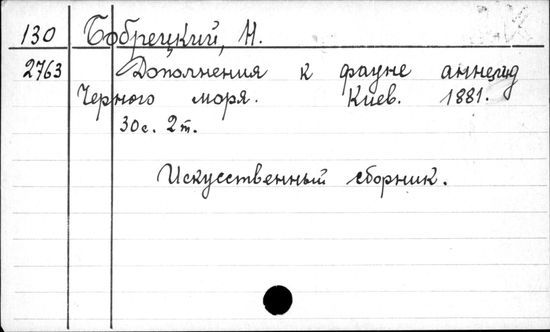 130 Бобрецкий, Н.
2763 Дополнения к фауне аннелид
Черного моря. Киев. 1881.
30с. 2т.
Искусственный сборник.